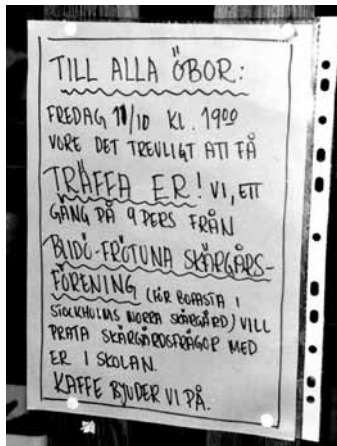 TILL ALLA ÖBOR:
FREDAG 11/10 KL. 1900
VORE DET TREVLIGT ATT FÅ
TRÄFFA ER! VI, ETT
GÄNG PÅ 9 PERS FRÅN
BLIDÖ-FRÖTUNA SKÄRGÅRS-
FÖRENING (FÖR BOFASTA I
STOCKHOLMS NORRA SKÄRGÅRD) VILL
PRATA SKÄRGÅRDSFRÅGOR MED
ER I SKOLAN.
KAFFE BJUDER VI PÅ.